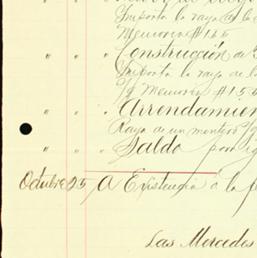 Importa la raya de l
Memoria #166
" " " Construcción de
Importa la raya de la
Memoria #15
" " " Arrendamien
Raya de un montero
" " " Saldo por ig
Octubre 25 A Existencia a la f
Las Mercedes